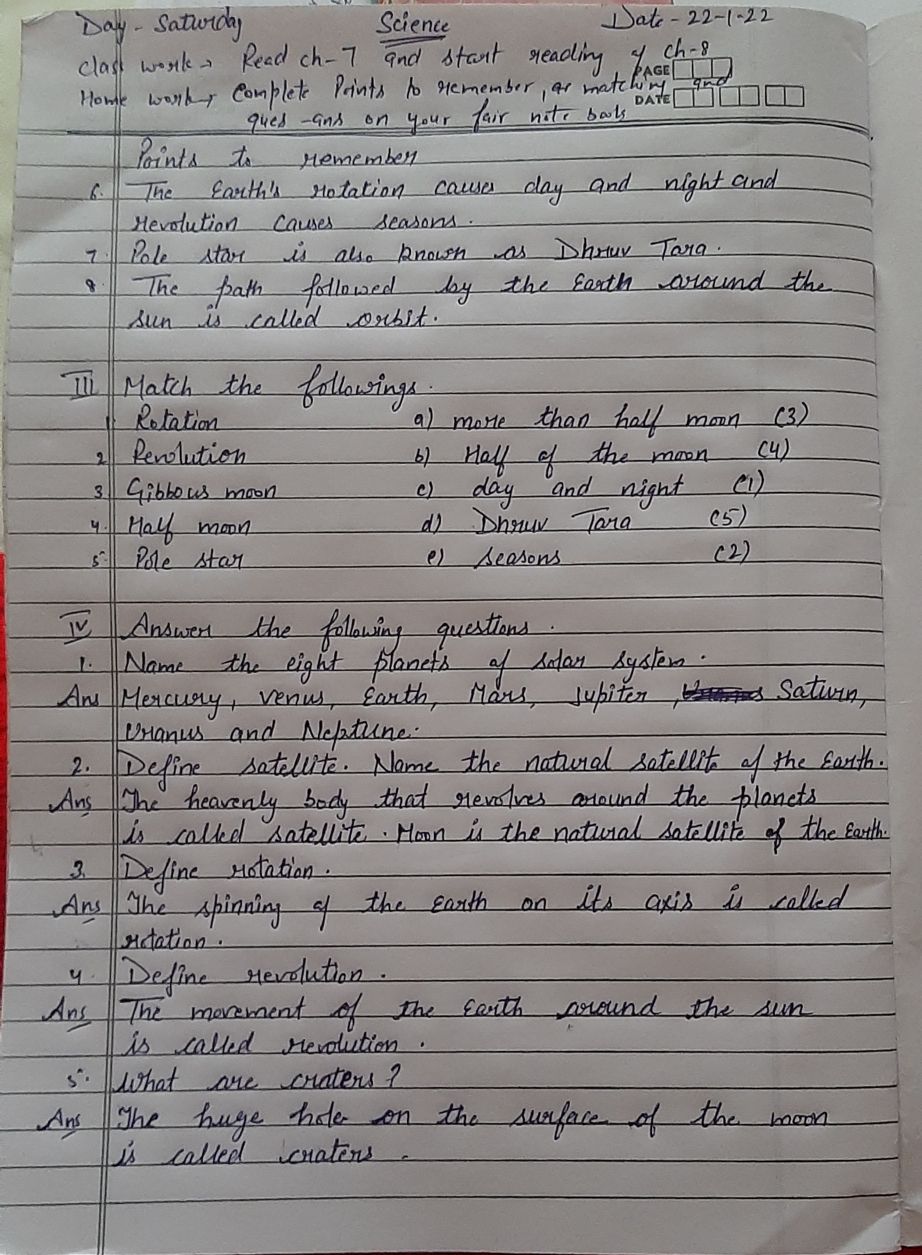 Day - Saturday Science Date - 22-1-22
Class work → Read ch-7 and start reading of ch-8
PAGE
Home work → Complete Points to remember, or matching and
DATE
ques -ans on your fair note book
Points to remember
6. The Earth's rotation causes day and night and
revolution causes seasons.
7. Pole star is also known as Dhruv Tara.
8. The path followed by the Earth around the
sun is called orbit.
III Match the followings.
1 Rotation a) more than half moon (3)
2 Revolution b) Half of the moon (4)
3 Gibbous moon c) day and night (1)
4. Half moon d) Dhruv Tara (5)
5 Pole star e) seasons (2)
IV Answer the following questions.
1. Name the eight planets of solar system.
Ans Mercury, Venus, Earth, Mars, Jupiter, Saturn,
Uranus and Neptune.
2. Define satellite. Name the natural satellite of the Earth.
Ans The heavenly body that revolves around the planets
is called satellite. Moon is the natural satellite of the Earth.
3. Define rotation.
Ans The spinning of the Earth on its axis is called
rotation.
4. Define revolution.
Ans The movement of the Earth around the sun
is called revolution.
5. What are craters?
Ans The huge hole on the surface of the moon
is called craters.